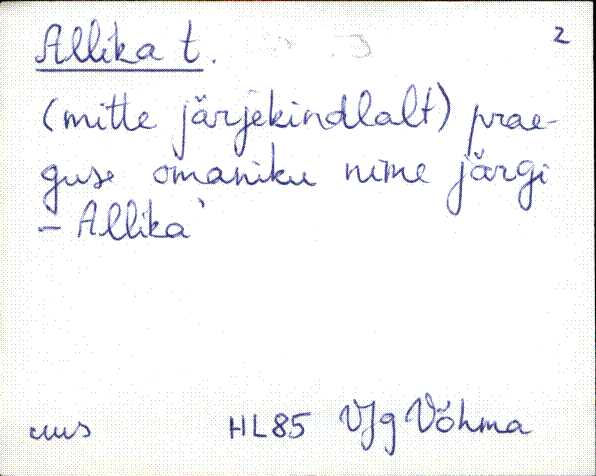 Allika t. 2
(mitte järjekindlalt) prae-
guse omaniku nime järgi
- Allika`
uus HL85 VJg Võhma